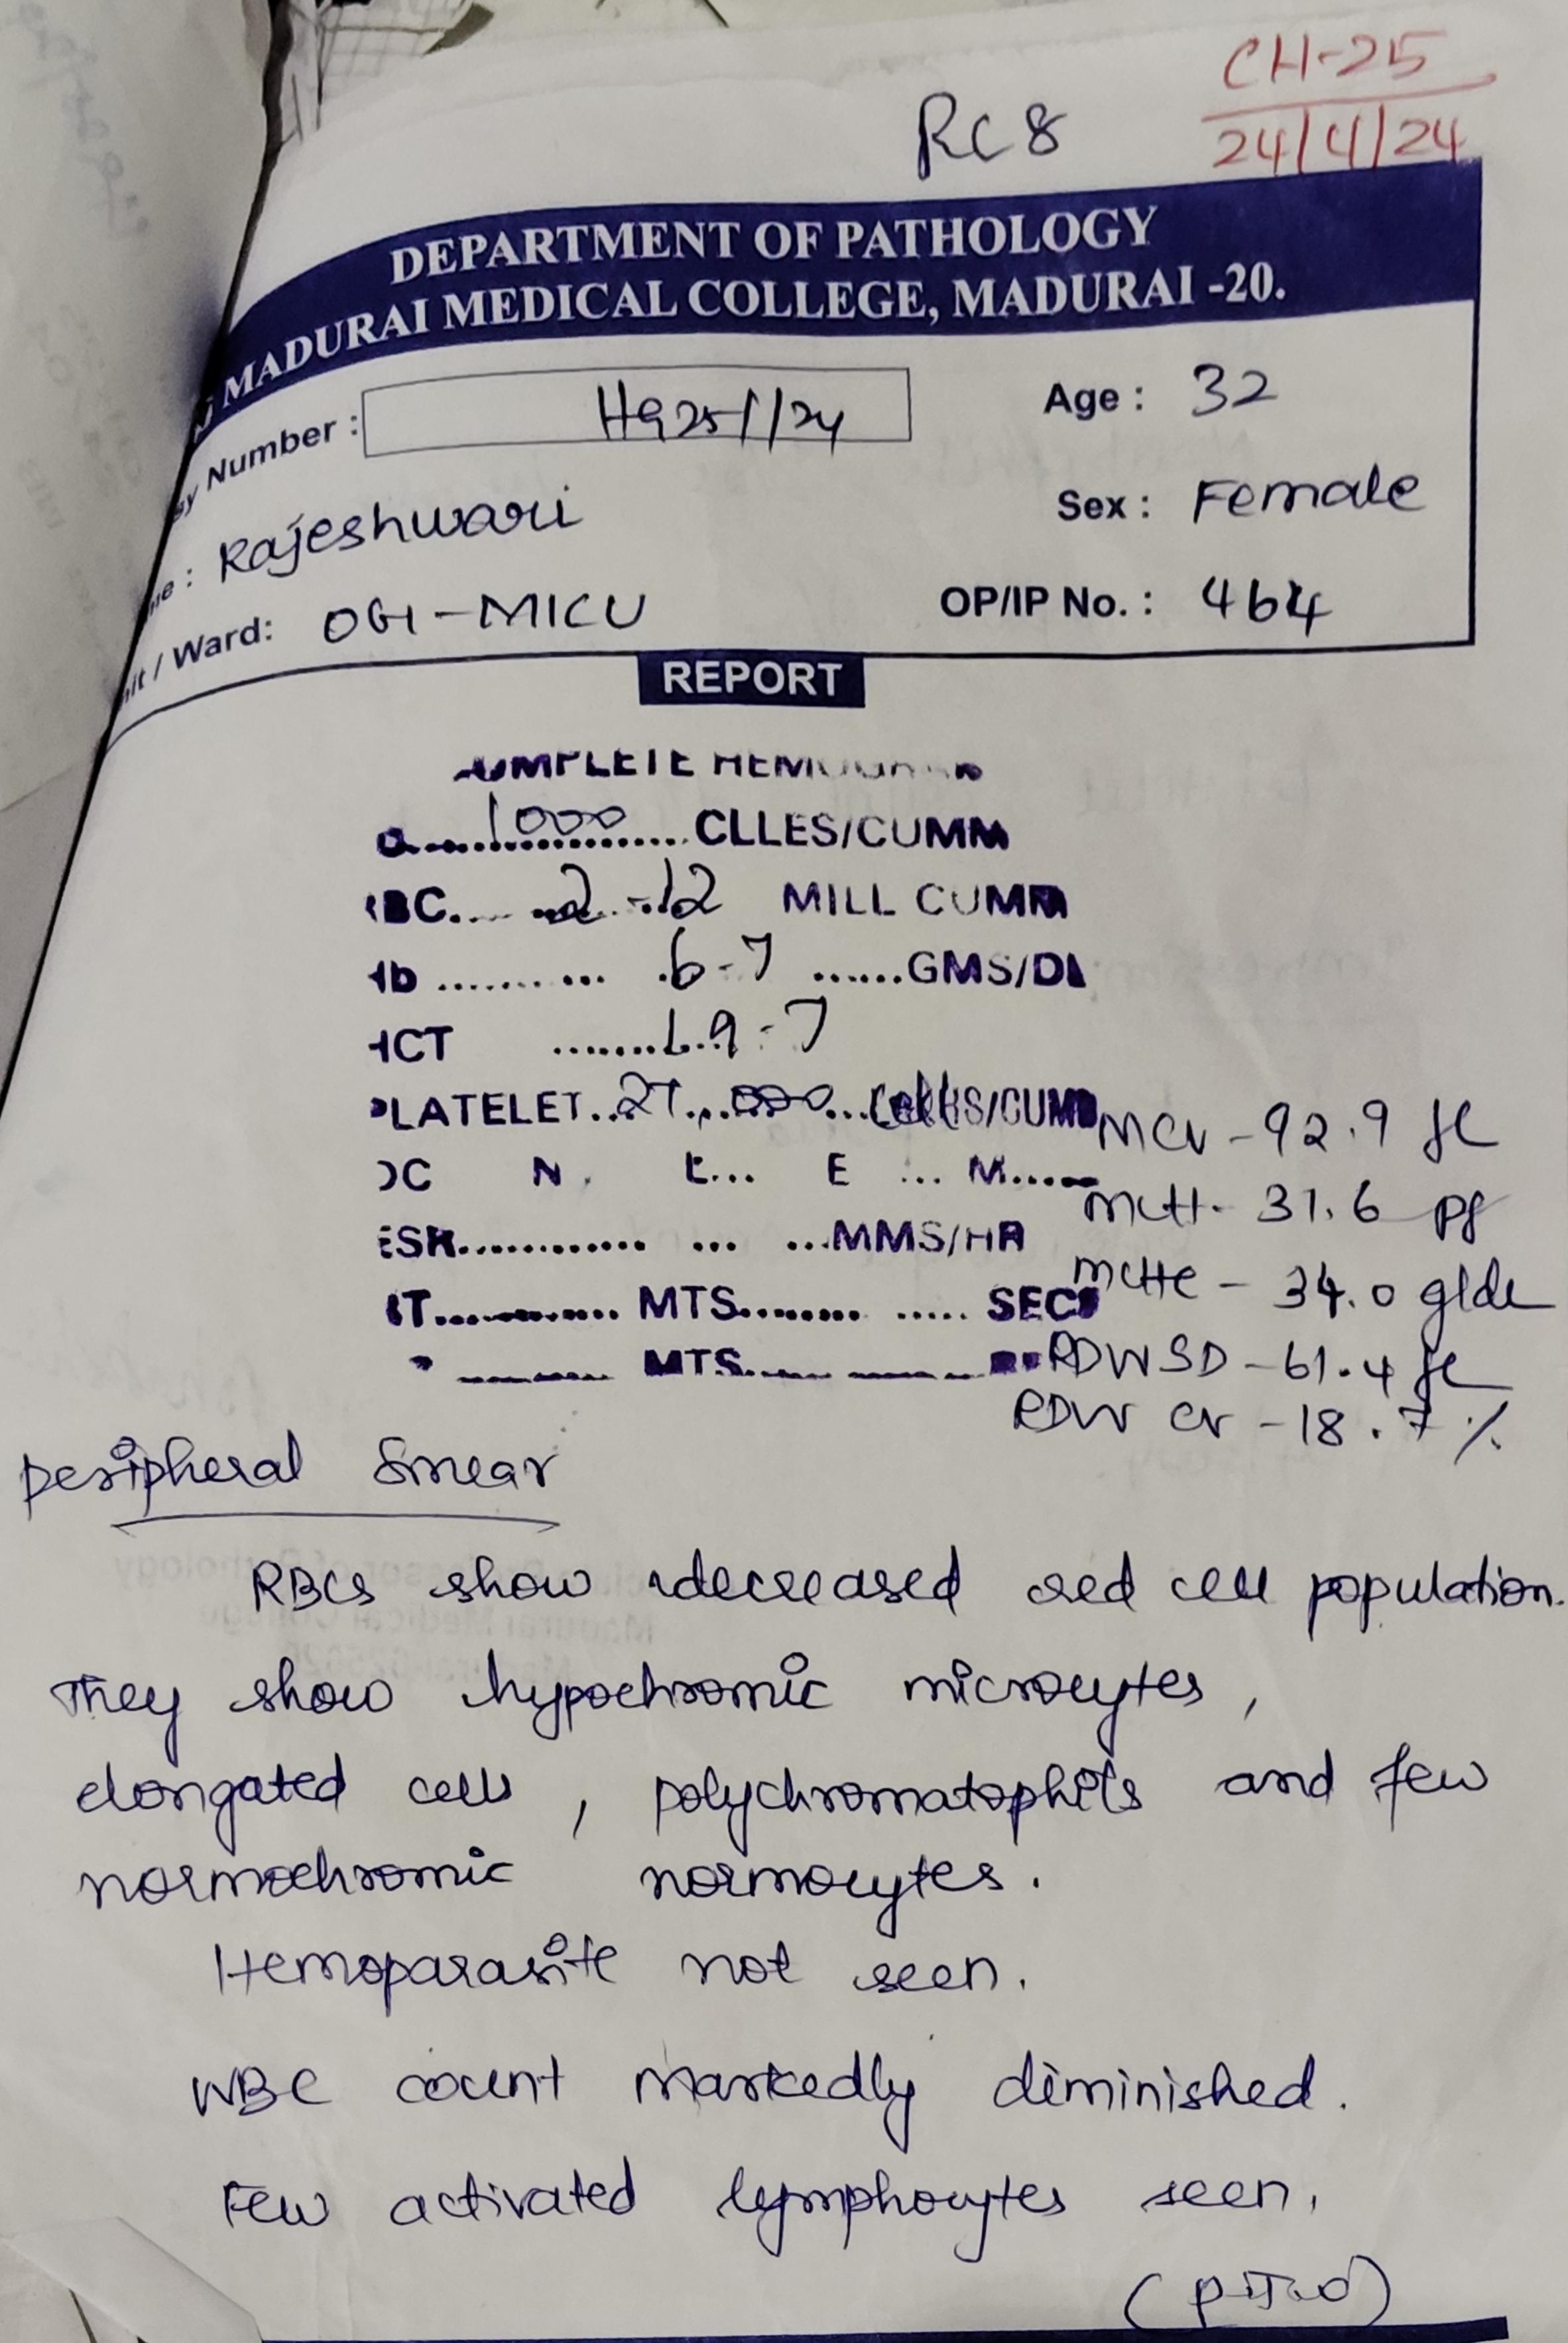 CH-25
RC8
24/4/24
DEPARTMENT OF PATHOLOGY
MADURAI MEDICAL COLLEGE, MADURAI -20.
Number : Age : 32
Rajeshwari Sex : Female
/ Ward: OG1-MICU OP/IP No. : 464
REPORT
1000 CLLES/CUMM
BC. 2.12 MILL CUMM
b .......... 6.7 ......GMS/DL
CT ........19.7
LATELET..27,000...Cells/CUMM
MCV - 92.9 fl
C N. L... E ... M.....
MCH - 31.6 pg
SR............. ... ...MMS/HR
MCHC - 34.0 g/dl
T............. MTS......... ..... SECS
MTS
RDW SD - 61.4 fl
RDW CV - 18.7 %
Peripheral Smear
RBCs show decreased red cell population.
They show hypochromic microcytes,
elongated cells, polychromatophils and few
normochromic normocytes.
Hemoparasite not seen.
WBC count markedly diminished.
Few activated lymphocytes seen.
(P.T.O)